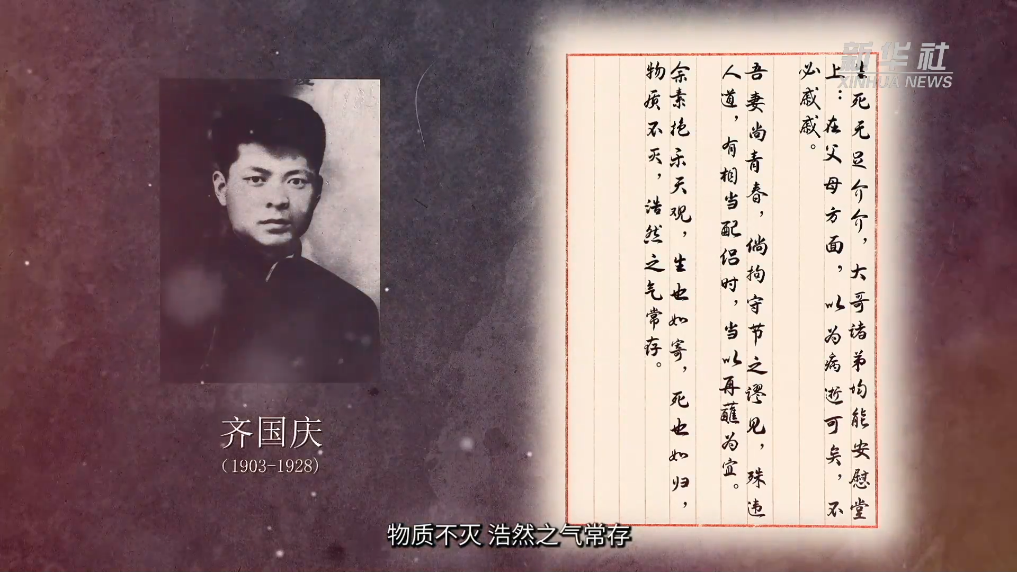 新华社
XINHUA NEWS
死无足介介，大哥诸弟均能安慰堂
上：在父母方面，以为病逝可矣，不
必戚戚。
吾妻尚青春，倘拘守节之谬见，殊违
人道，有相当配侣时，当以再醮为宜。
余素抱乐天观，生也如寄，死也如归，
物质不灭，浩然之气常存。
齐国庆
（1903-1928）
物质不灭 浩然之气常存